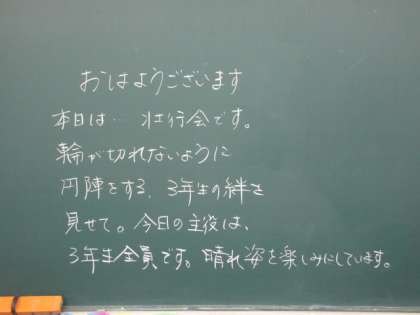 おはようございます
本日は… 壮行会です。
輪が切れないように
円陣をする、3年生の絆を
見せて。今日の主役は、
3年生全員です。晴れ姿を楽しみにしています。